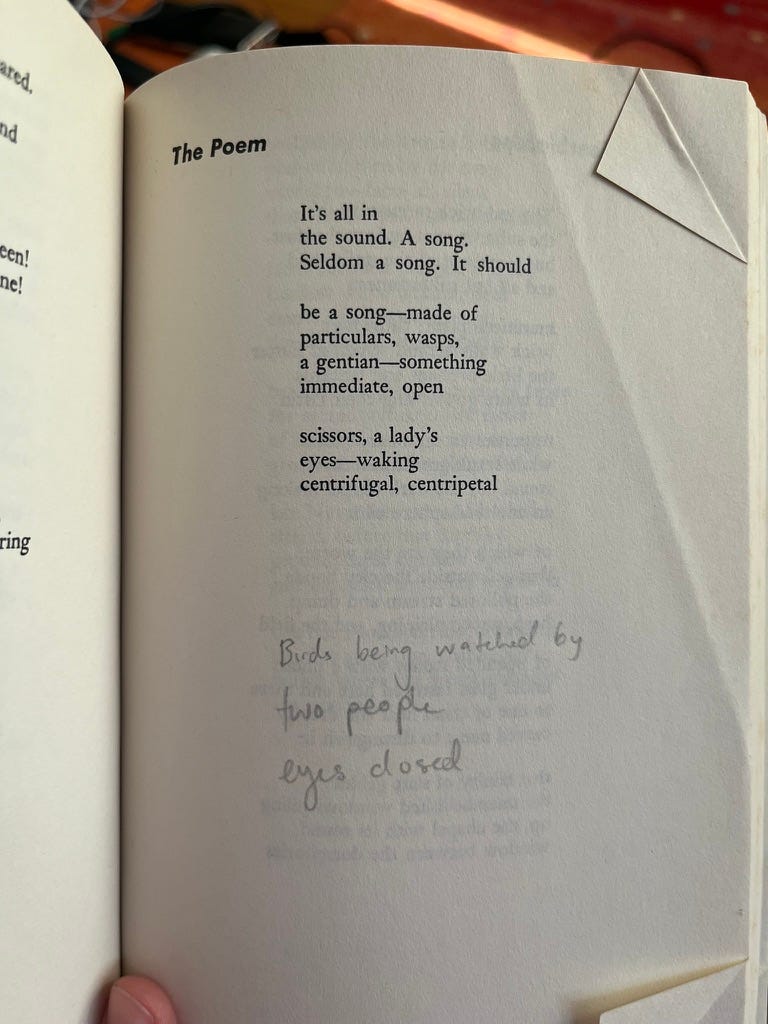 ared,
nd
een!
ne!
ring
The Poem
It's all in
the sound. A song.
Seldom a song. It should
be a song—made of
particulars, wasps,
a gentian—something
immediate, open
scissors, a lady's
eyes—waking
centrifugal, centripetal
Birds being watched by
two people
eyes closed